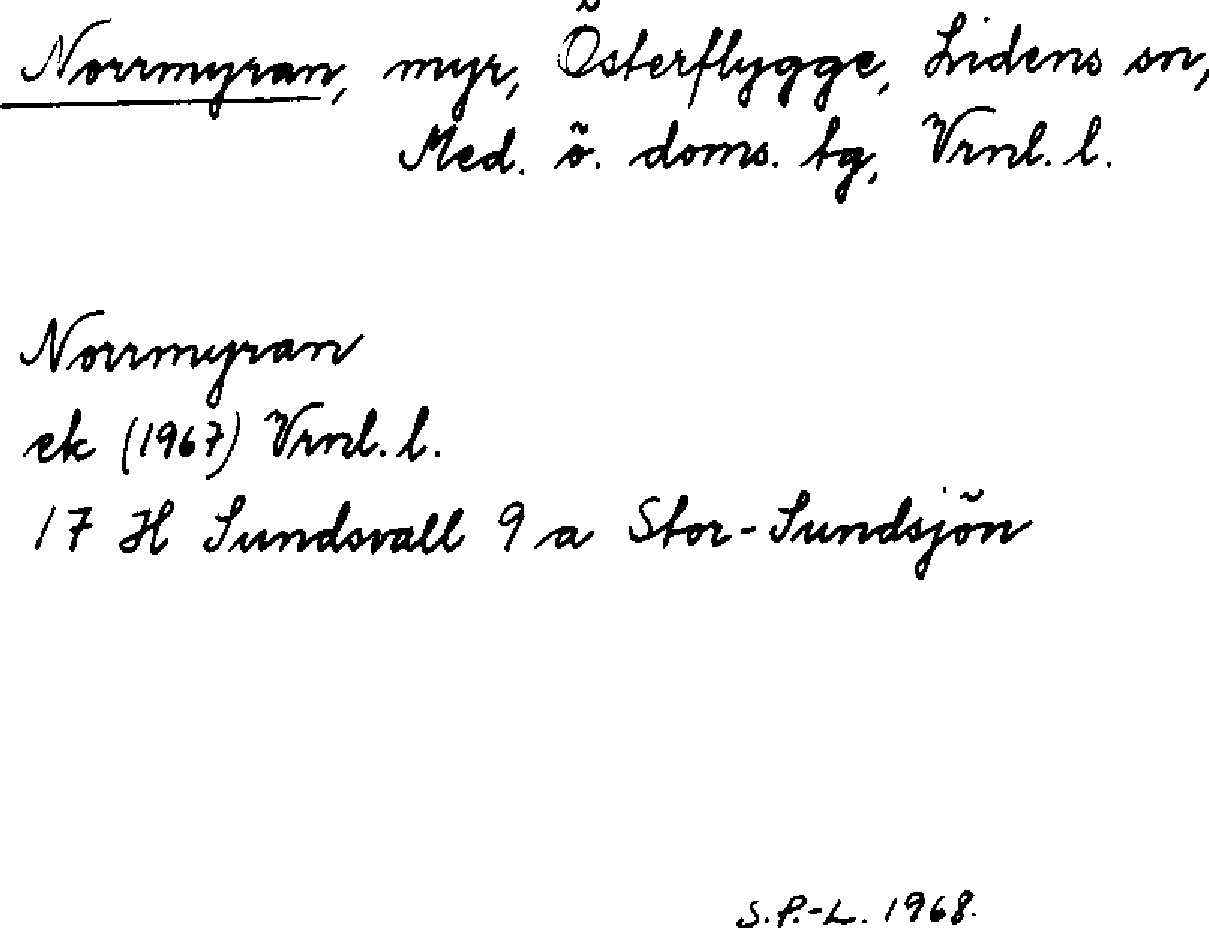 Norrmyran, myr, Österflygge, Lidens sn,
Med. ö. doms. tg, Vrnl. l.
Norrmyran
ek (1967) Vrnl. l.
17 H Sundsvall 9 a Stor-Sundsjön
S.P.-L. 1968.